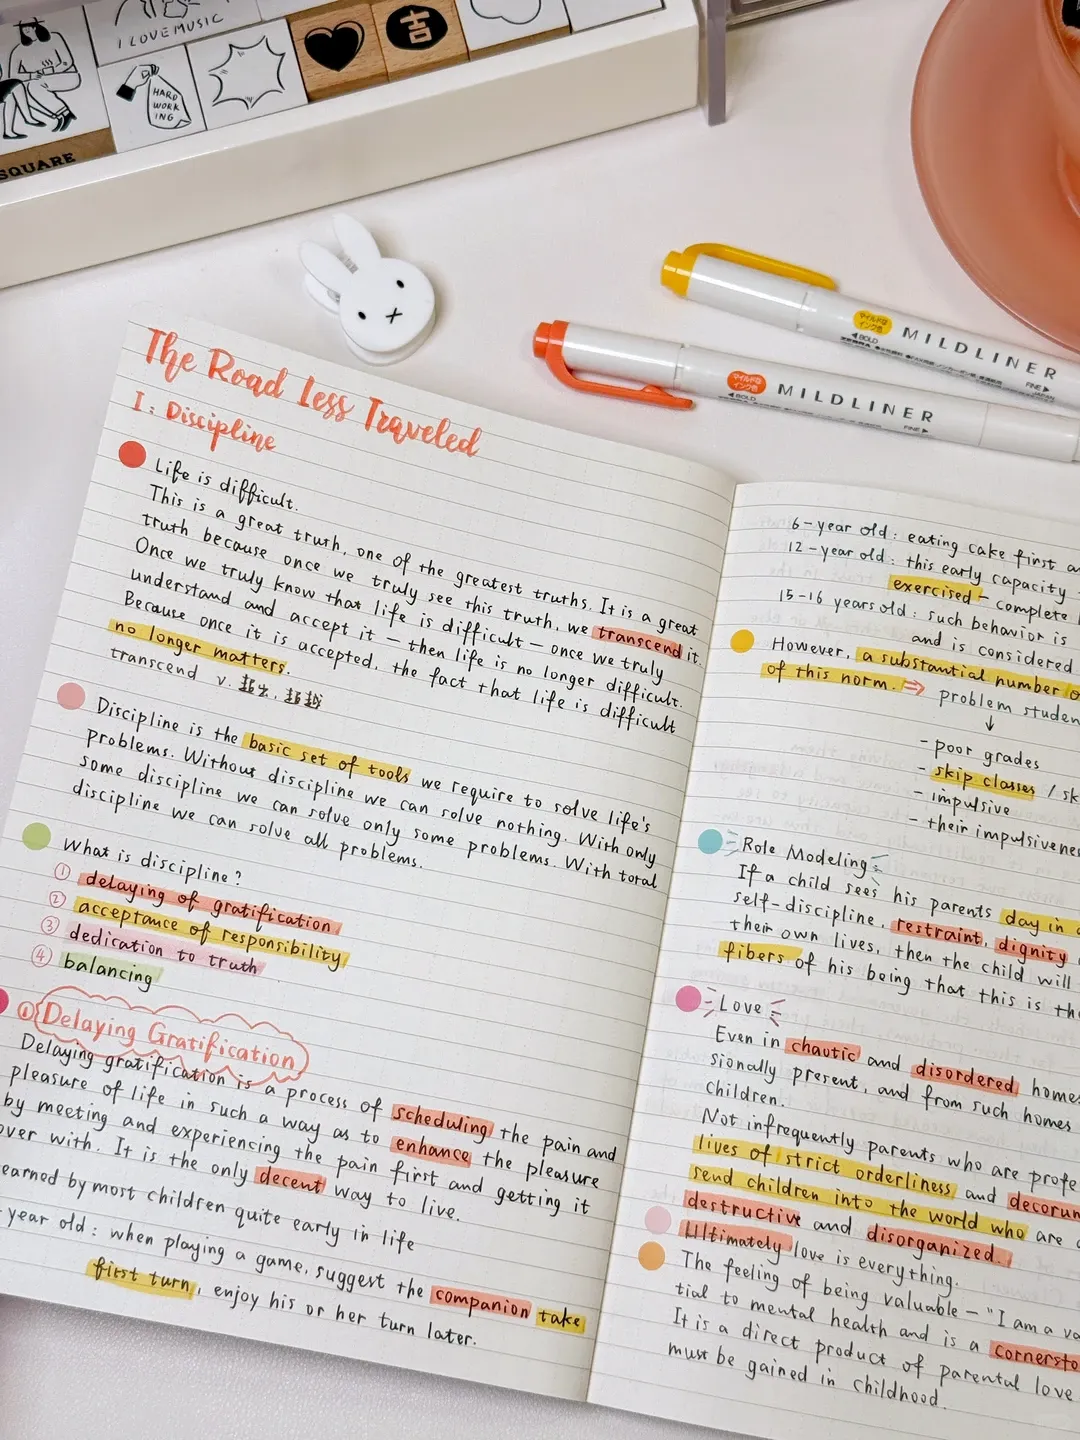 I LOVE MUSIC
HARD
WORK
ING
吉
SQUARE
マイルドな
インク色
◀BOLD
MILDLINER
FINE▶
JAPAN
マイルドな
インク色
◀BOLD
MILDLINER
FINE▶
The Road Less Traveled
I: Discipline
Life is difficult.
This is a great truth, one of the greatest truths. It is a great
truth because once we truly see this truth, we transcend it.
Once we truly know that life is difficult — once we truly
understand and accept it — then life is no longer difficult.
Because once it is accepted, the fact that life is difficult
no longer matters.
transcend v. 超出, 超越
Discipline is the basic set of tools we require to solve life's
problems. Without discipline we can solve nothing. With only
some discipline we can solve only some problems. With total
discipline we can solve all problems.
What is discipline?
① delaying of gratification
② acceptance of responsibility
③ dedication to truth
④ balancing
① Delaying Gratification
Delaying gratification is a process of scheduling the pain and
pleasure of life in such a way as to enhance the pleasure
by meeting and experiencing the pain first and getting it
over with. It is the only decent way to live.
earned by most children quite early in life
-year old: when playing a game, suggest the companion take
first turn, enjoy his or her turn later.
6-year old: eating cake first
12-year old: this early capacity
exercised - complete
15-16 years old: such behavior is
and is considered
However, a substantial number
of this norm. ⇒ problem studen
↓
- poor grades
- skip classes / sk
- impulsive
- their impulsivenes
Role Modeling
If a child sees his parents day in
self-discipline, restraint, dignity
their own lives, then the child will
fibers of his being that this is the
Love
Even in chaotic and disordered homes
sionally present, and from such homes
children.
Not infrequently parents who are profe
lives of strict orderliness and decorum
send children into the world who are
destructive and disorganized.
Ultimately love is everything.
The feeling of being valuable — "I am a va
tial to mental health and is a cornersto
It is a direct product of parental love
must be gained in childhood.